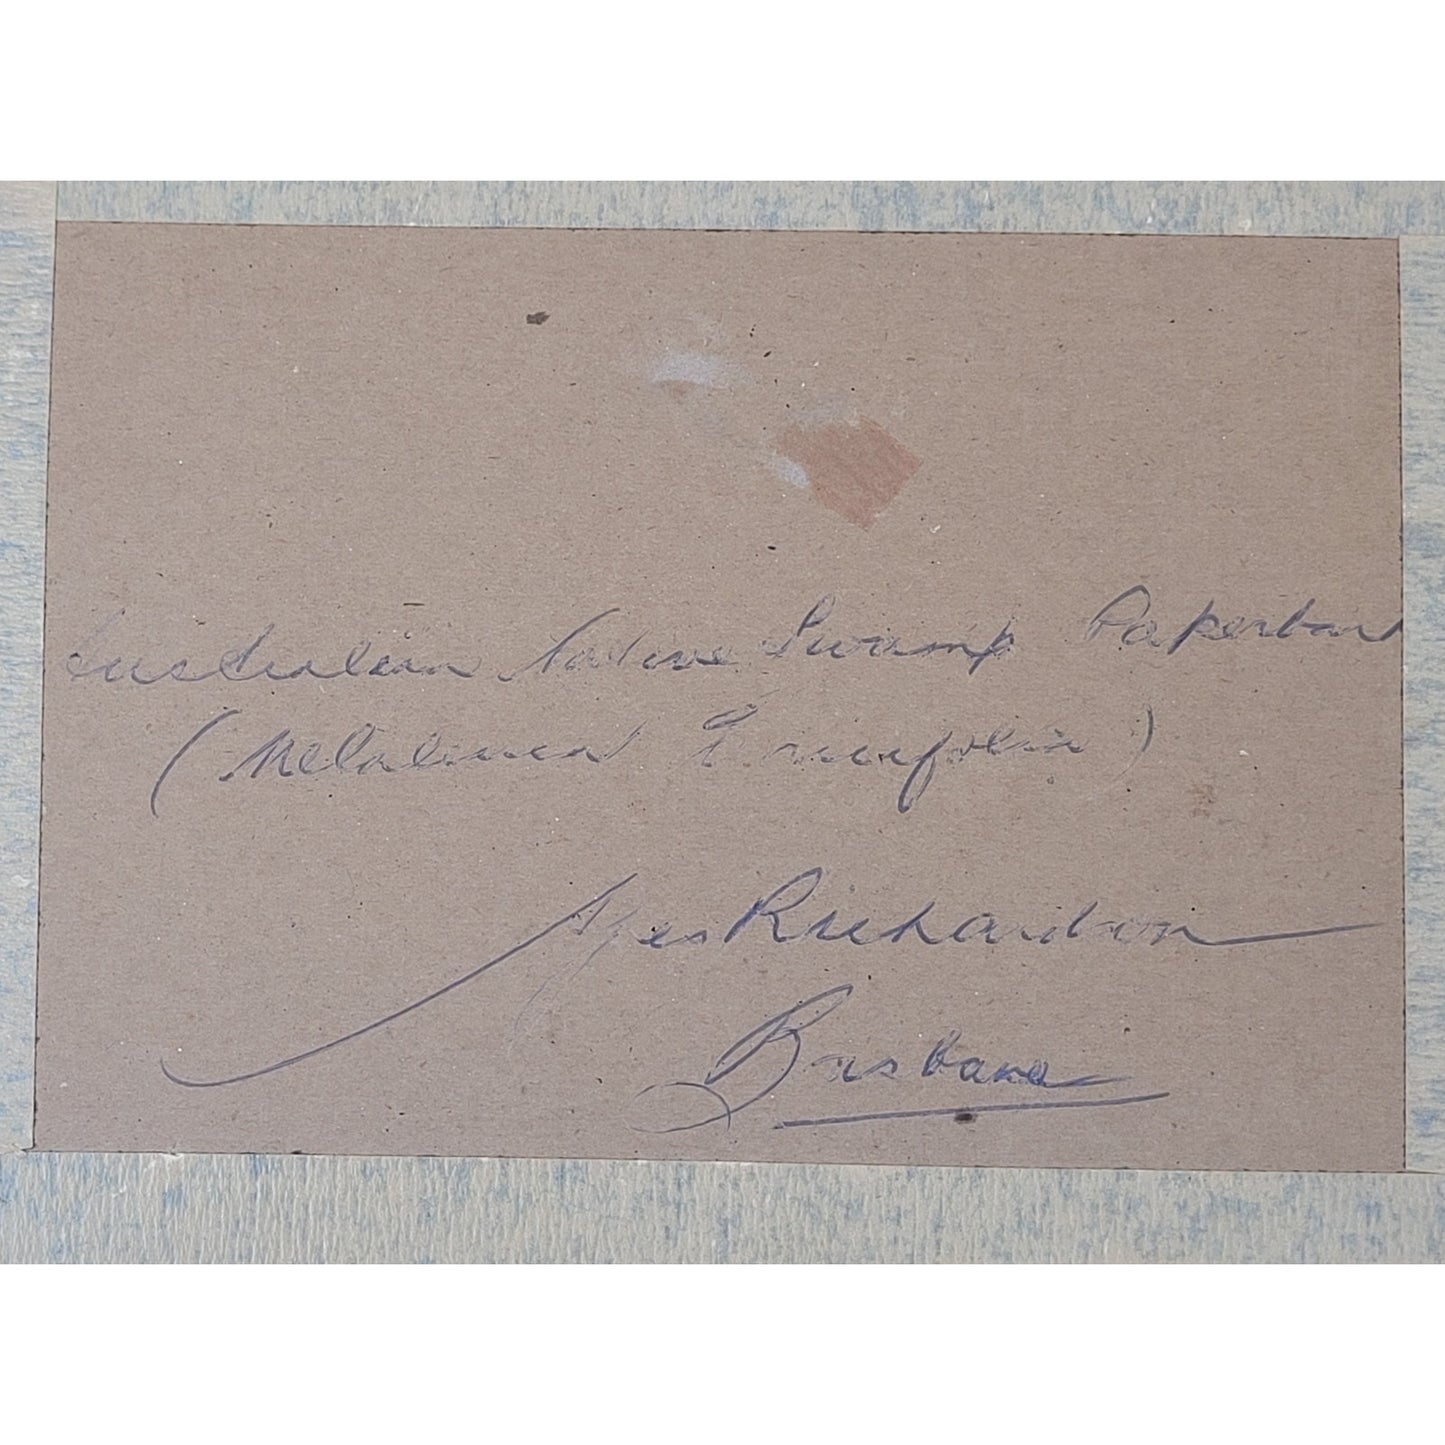 Australian Native Swamp Paperbark
(Melaleuca
Richardson
Brisbane